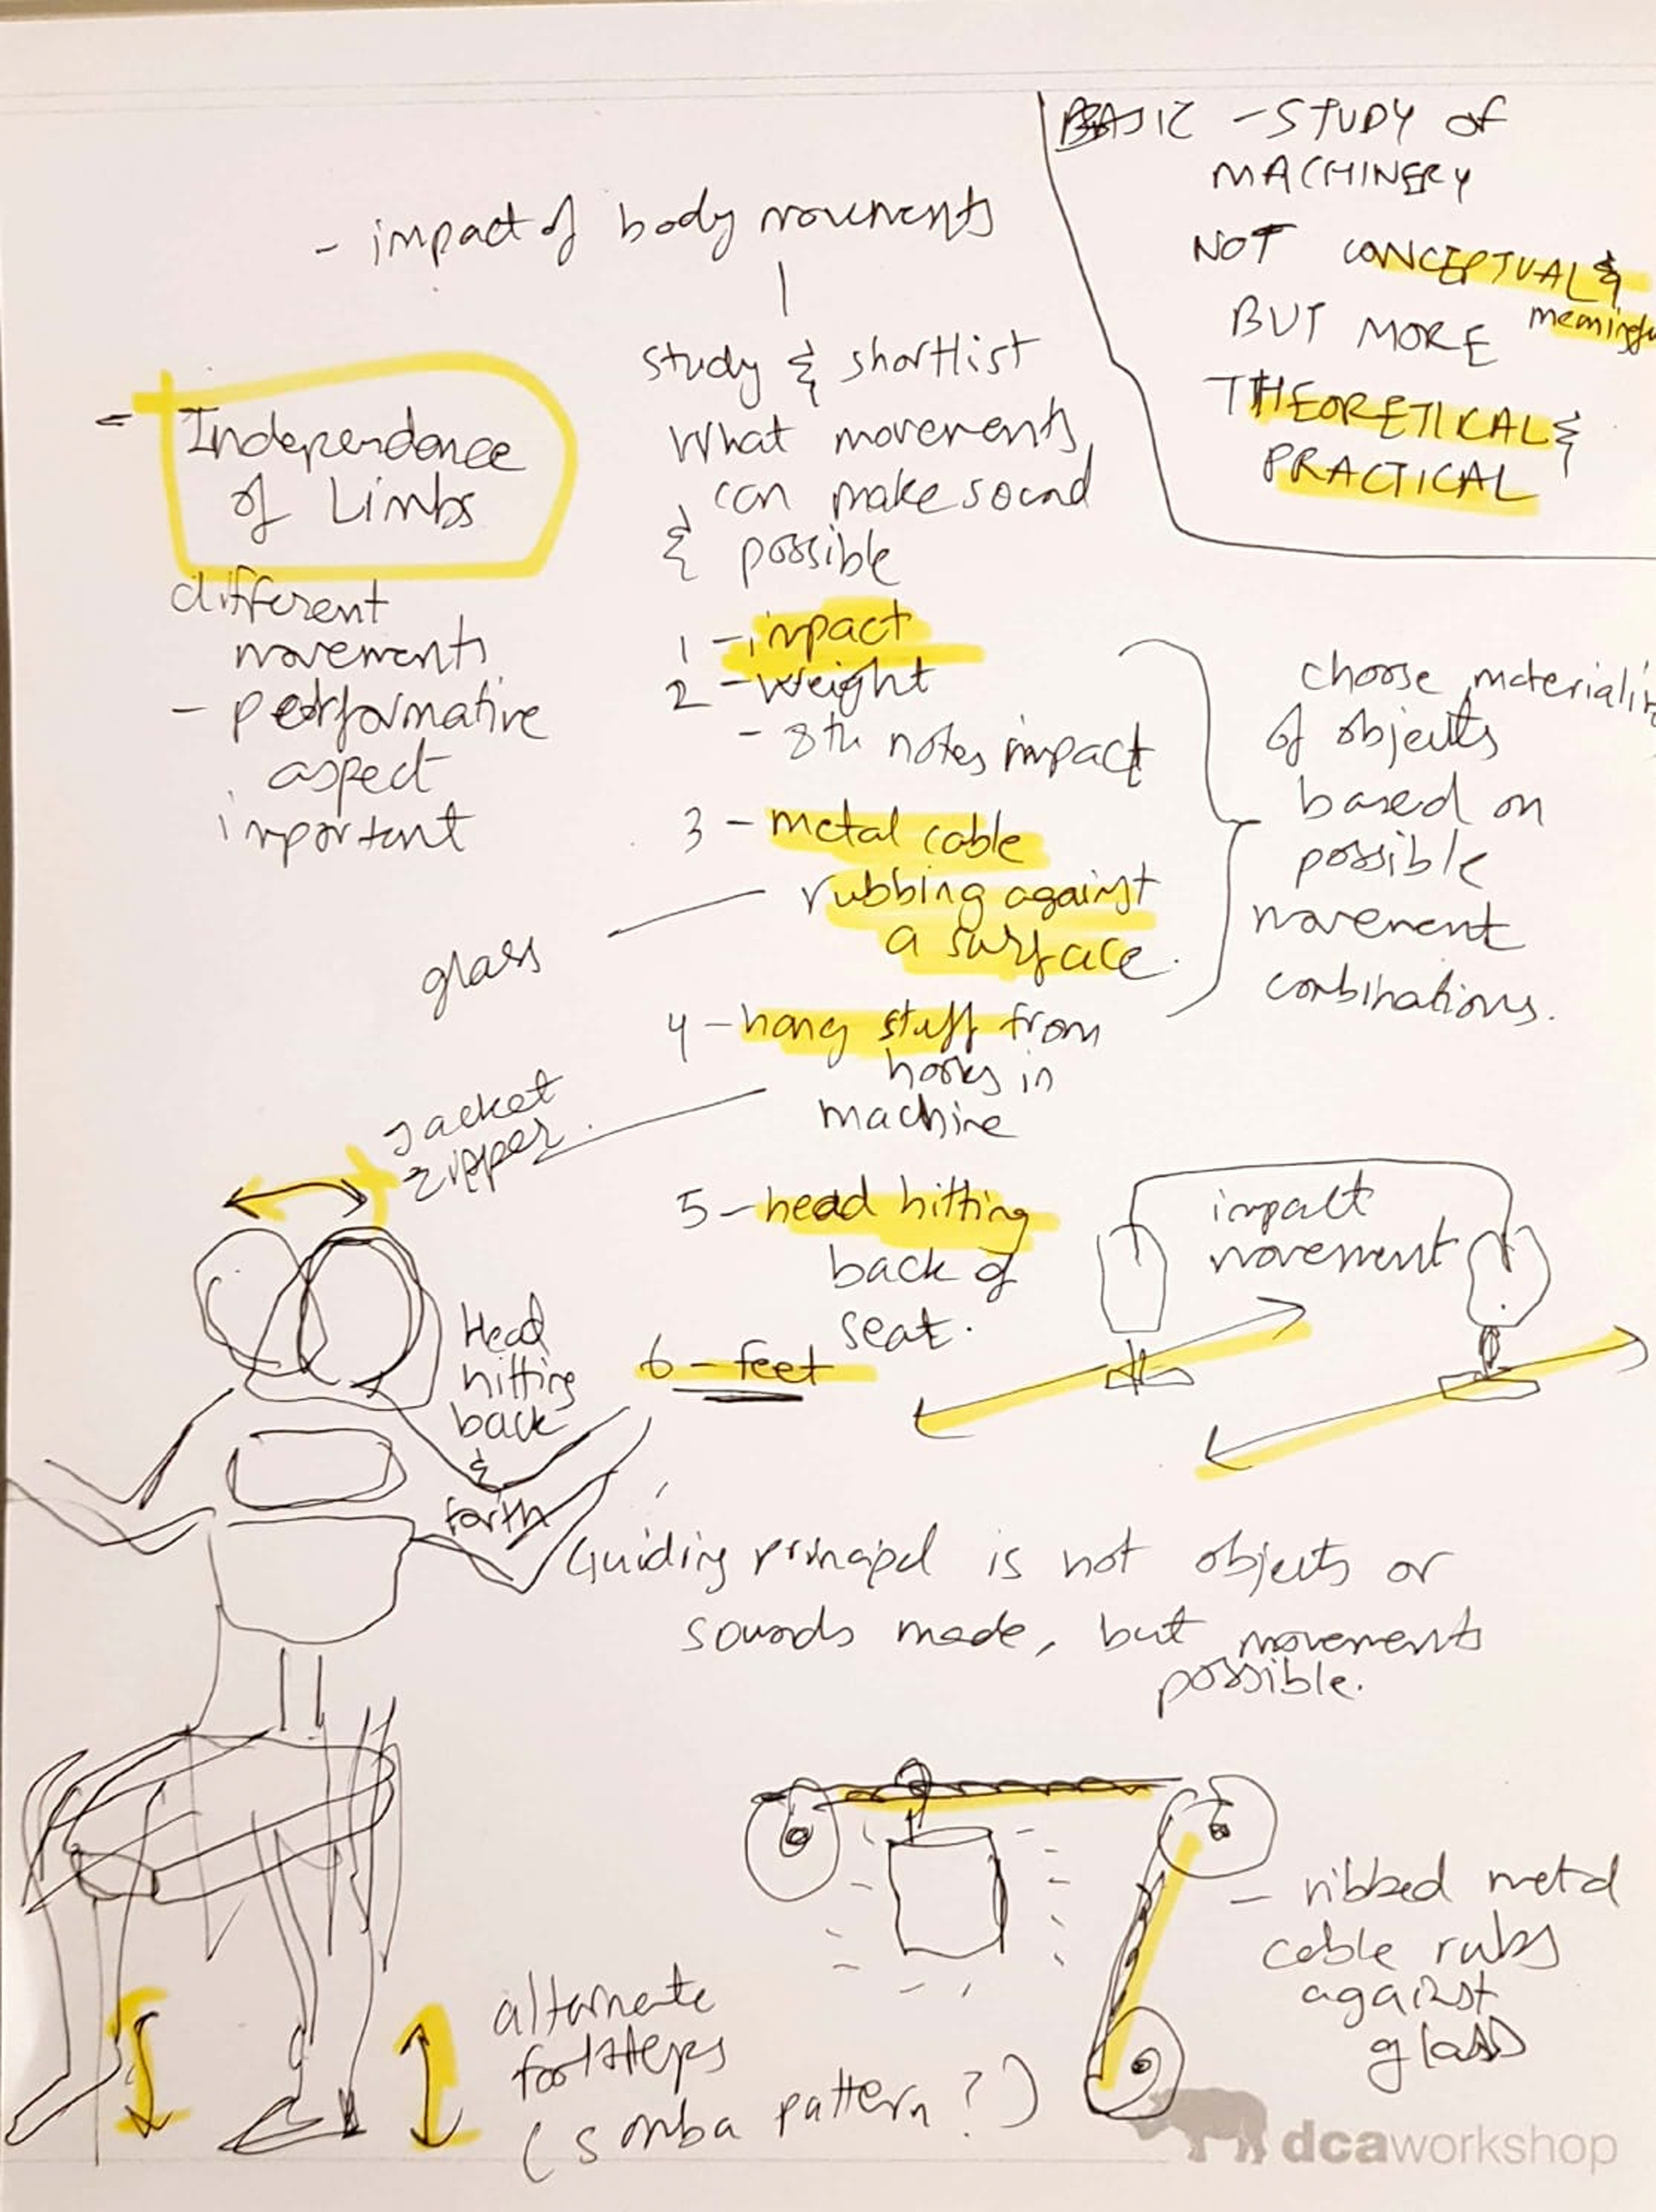 BASIC - STUDY of
MACHINERY
NOT CONCEPTUAL &
meaningfu
BUT MORE
THEORETICAL &
PRACTICAL
- impact of body movements
study & shortlist
what movements
can make sound
& possible
- Independence
of Limbs
different
movements
- performative
aspect
important
1 - impact
2 - weight
- 8th notes impact
3 - metal cable
rubbing against
a surface.
glass
4 - hang stuff from
hooks in
machine
Jacket
zipper.
5 - head hitting
back of
seat.
6 - feet
choose materiali
of objects
based on
possible
movement
combinations.
impact
movement
Head
hitting
back
&
forth
Guiding principal is not objects or
sounds made, but movements
possible.
- ribbed metal
cable rubs
against
glass
alternate
footsteps
(samba pattern?)
dcaworkshop